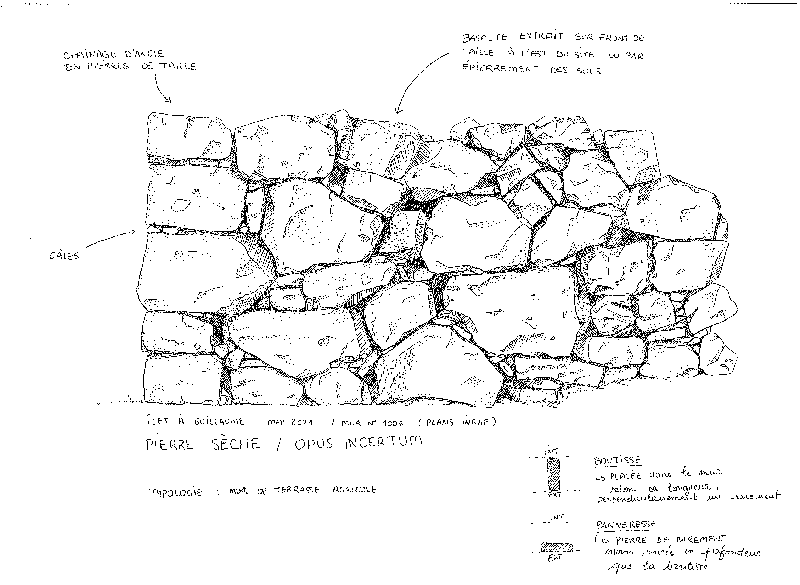 CHAÎNAGE D'ANGLE
EN PIERRES DE TAILLE
BASALTE EXTRAIT SUR FRONT DE
TAILLE À L'EST DU SITE OU PAR
ÉPIERREMENT DES SOLS
CALES
ÎLET À GUILLAUME MAI 2021 / MUR N° (PLANS INRAP)
PIERRE SÈCHE / OPUS INCERTUM
TYPOLOGIE : MUR DE TERRASSE AGRICOLE
INT
EXT
BOUTISSE
↳ PLACÉE dans le mur
selon sa longueur,
perpendiculairement au parement
INT
EXT
PANNERESSE
↳ PIERRE DE PAREMENT
moins en profondeur
que la boutisse